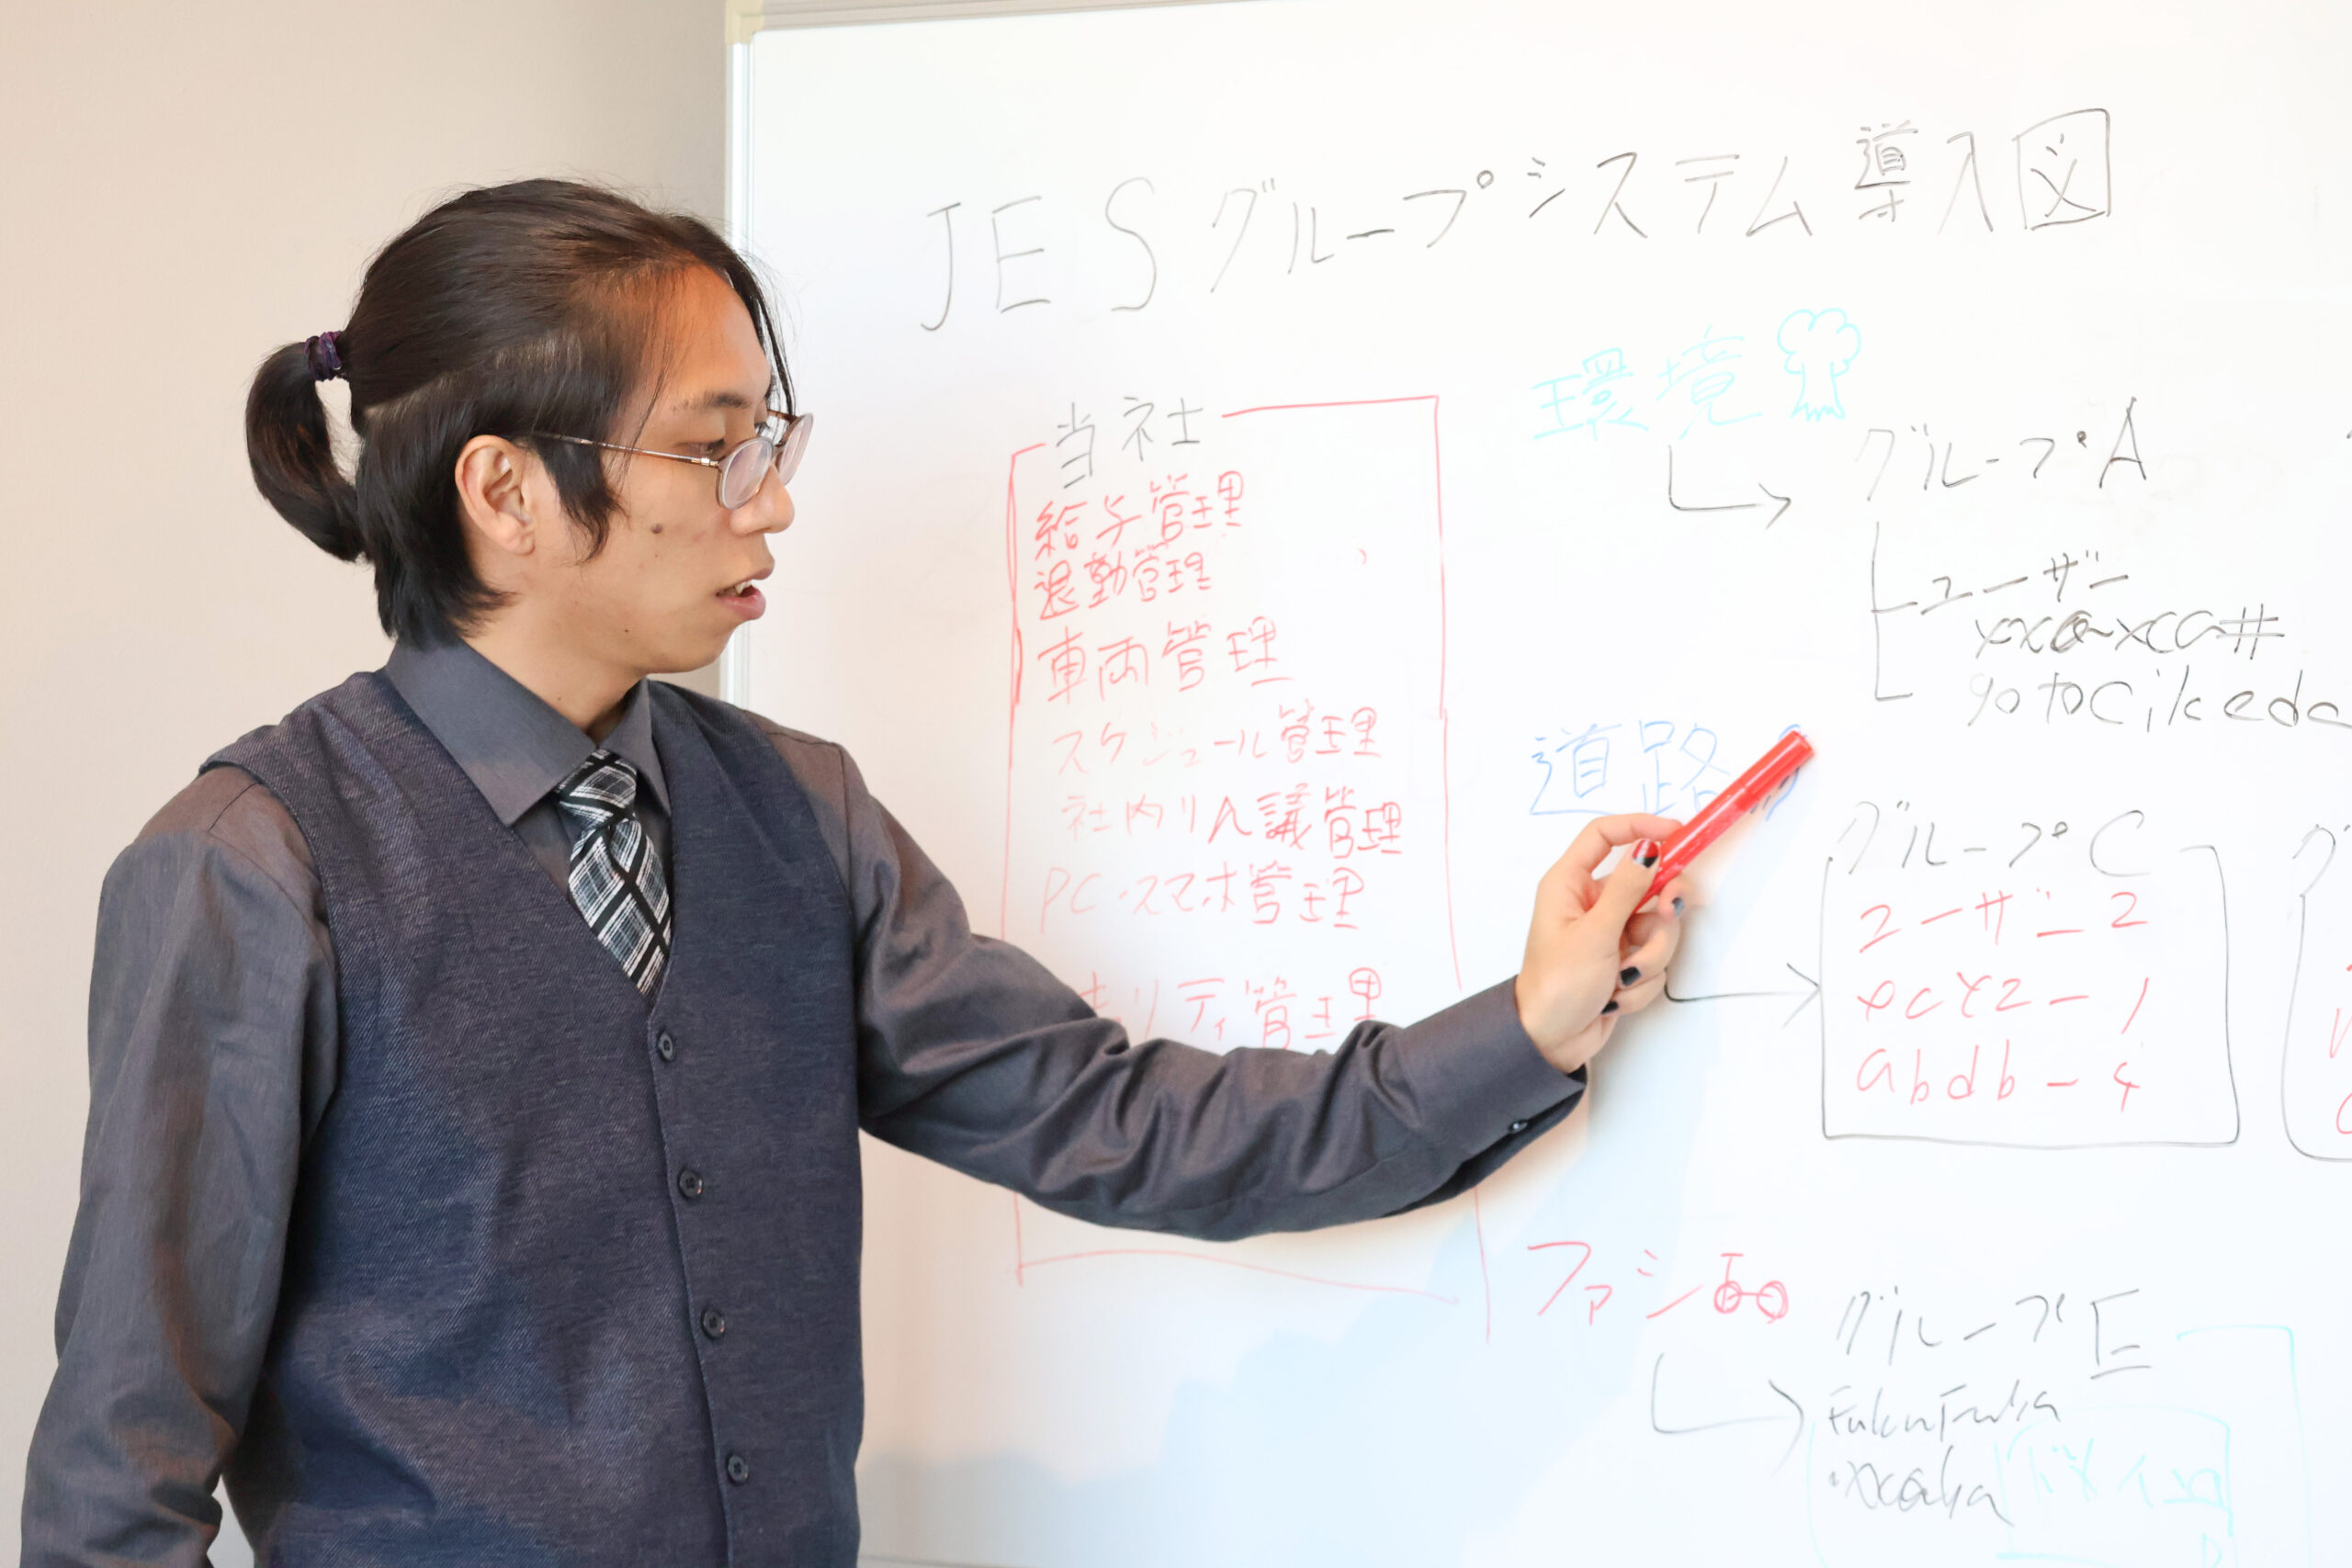 JESグループシステム導入図
当社
給与管理
退勤管理
車両管理
スケジュール管理
社内リ人議管理
PC・スマホ管理
リティ管理
環境
グループA
ユーザー
道路
グループC
ユーザー2
xcyz-1
abdb-4
ファシ
グループE